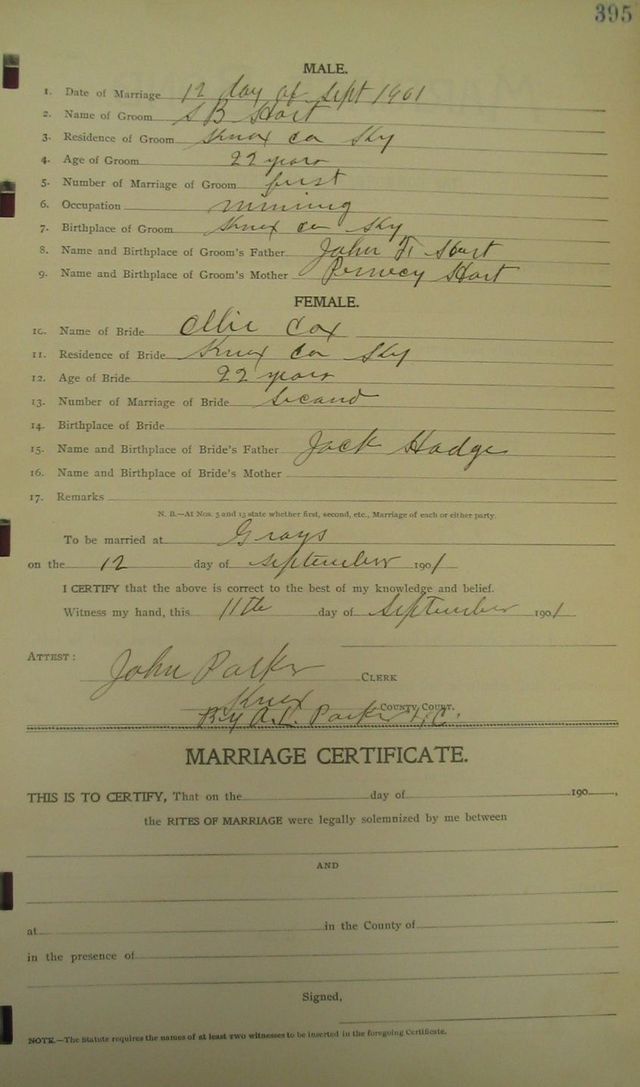 395
MALE.
1. Date of Marriage 12 day of Sept 1901
2. Name of Groom S B Hart
3. Residence of Groom Knox Co Ky
4. Age of Groom 22 years
5. Number of Marriage of Groom first
6. Occupation mining
7. Birthplace of Groom Knox Co Ky
8. Name and Birthplace of Groom's Father John F Hart
9. Name and Birthplace of Groom's Mother Hart
FEMALE.
10. Name of Bride Ollie Cox
11. Residence of Bride Knox Co Ky
12. Age of Bride 22 years
13. Number of Marriage of Bride Second
14. Birthplace of Bride
15. Name and Birthplace of Bride's Father Jack Hodge
16. Name and Birthplace of Bride's Mother
17. Remarks
N. B.—At Nos. 5 and 13 state whether first, second, etc., Marriage of each or either party.
To be married at Grays
on the 12 day of September 1901
I CERTIFY that the above is correct to the best of my knowledge and belief.
Witness my hand, this 11th day of September 1901
ATTEST:
John Parker CLERK
Knox COUNTY COURT.
By A. L. Parker D.C.
MARRIAGE CERTIFICATE.
THIS IS TO CERTIFY, That on the day of 190 ,
the RITES OF MARRIAGE were legally solemnized by me between
AND
at in the County of
in the presence of
Signed,
NOTE.—The Statute requires the names of at least two witnesses to be inserted in the foregoing Certificate.